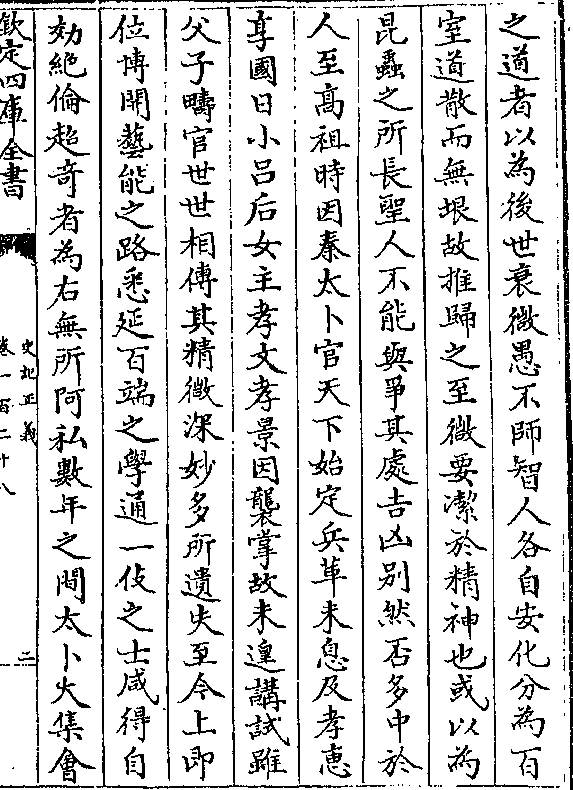 之道者以為後世衰微愚不師智人各自安化分為百
室道散而無垠故推歸之至微要潔於精神也或以為
昆蟲之所長聖人不能與爭其處吉凶別然否多中於
人至高祖時因秦太卜官天下始定兵革未息及孝惠
享國日小吕后女主孝文孝景因襲掌故未遑講試雖
父子疇官世世相傳其精微深妙多所遺失至今上即
位博開藝能之路悉延百端之學通一伎之士咸得自
効絶倫超奇者為右無所阿私數年之間太卜大集會
欽定四庫全書
史記正義
卷一百二十八
二